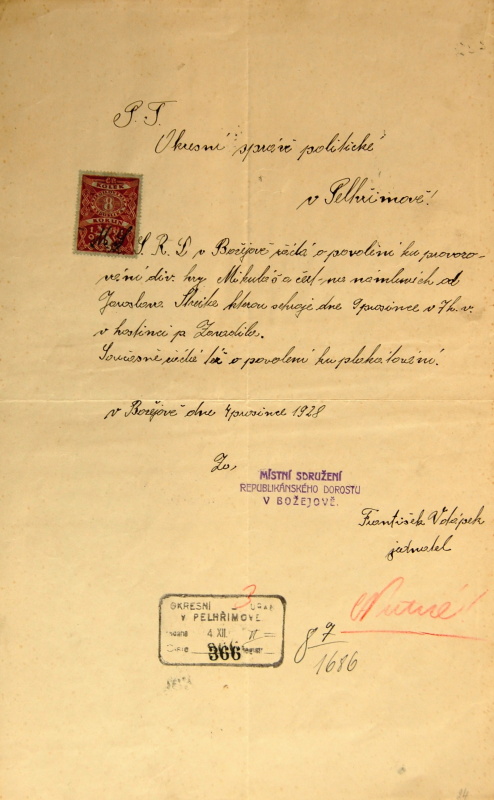 P. T.
Okresní správě politické
v Pelhřimově!
KOLEK
8
KORUN
S. R. D. v Božejově žádá o povolení ku provozo-
vání div. hry Mikuláš a čert na námluvách od
Jaroslava kterou sehraje dne 9 prosince v 7 h. v.
v hostinci p. Zavadila.
Současně žádá též o povolení ku plakátování.
v Božejově dne 4 prosince 1928
Za
MÍSTNÍ SDRUŽENÍ
REPUBLIKÁNSKÉHO DOROSTU
V BOŽEJOVĚ.
František Vdápek
jednatel
Nutné!
3
OKRESNÍ ÚŘAD
V PELHŘIMOVĚ
4 XII.
Číslo 366
8 7
1686
84